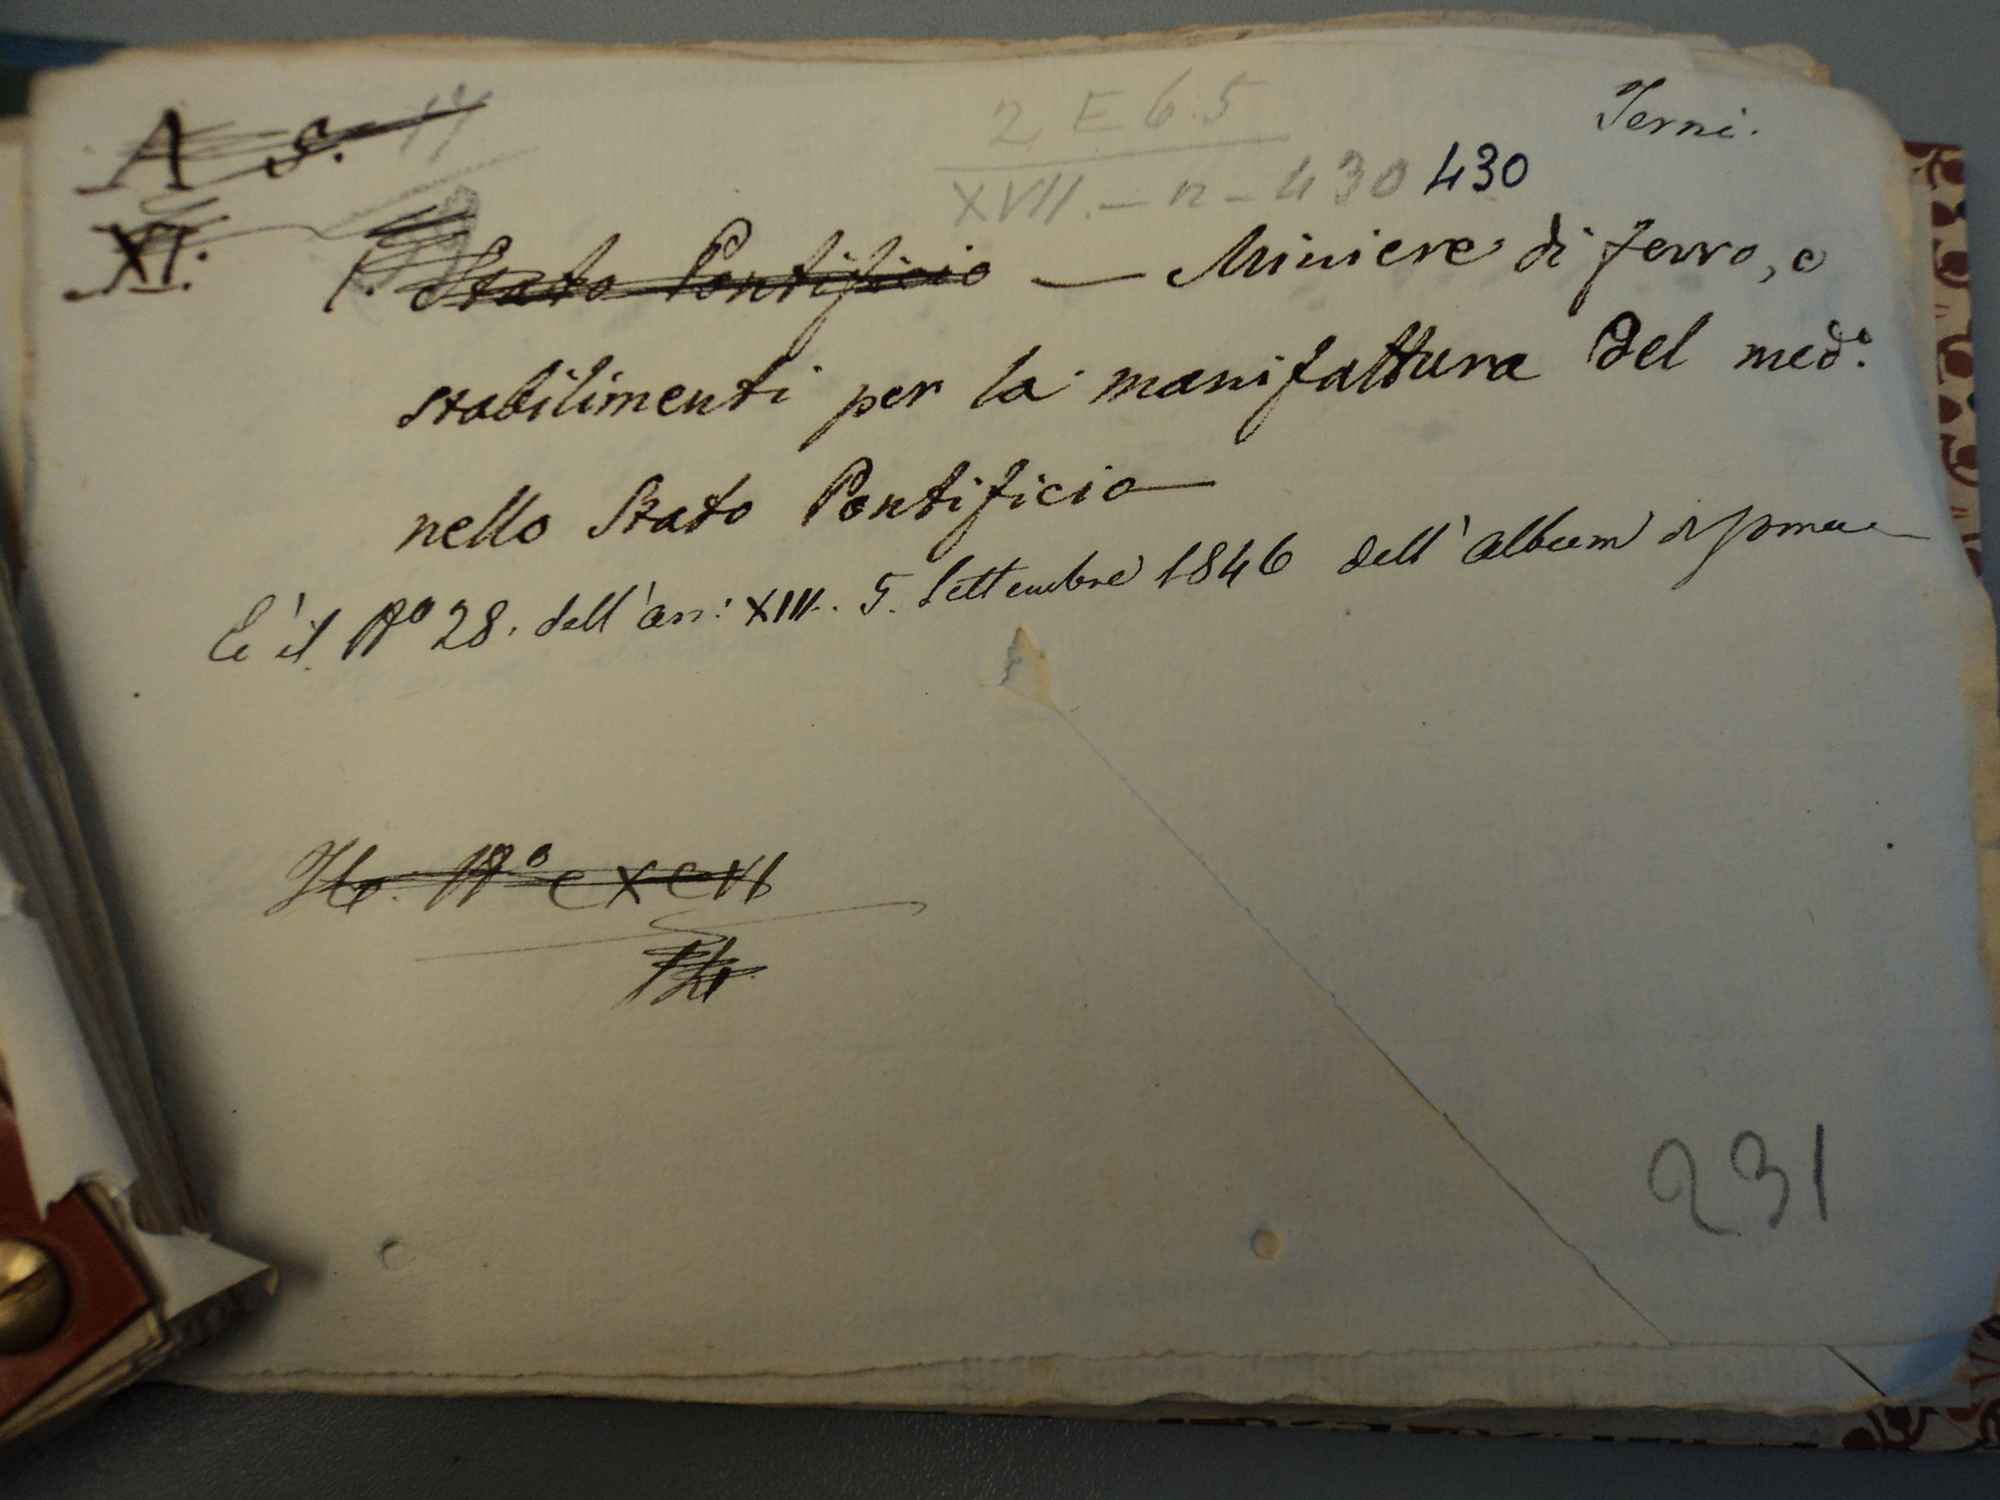 A s.
2 E 6.5
Terni.
XVII. - n - 430 430
XI.
1. Stato Pontificio — Miniere di ferro, e
stabilimenti per la manifattura del med.o
nello Stato Pontificio —
È il No 28. dell'an: XIII. 5. Settembre 1846 dell'album di Roma
No CXCVI
231